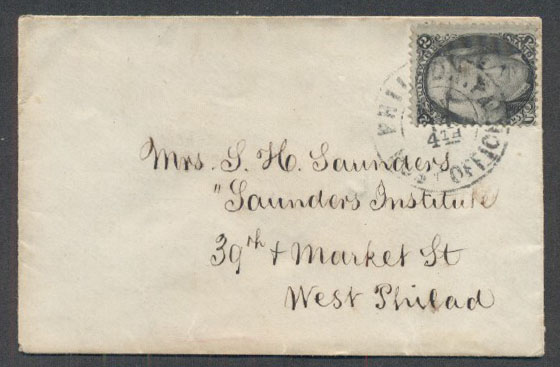 PHILA
OFFICE
4TH
Mrs. S. H. Saunders
"Saunders Institute
39th & Market St
West Philad